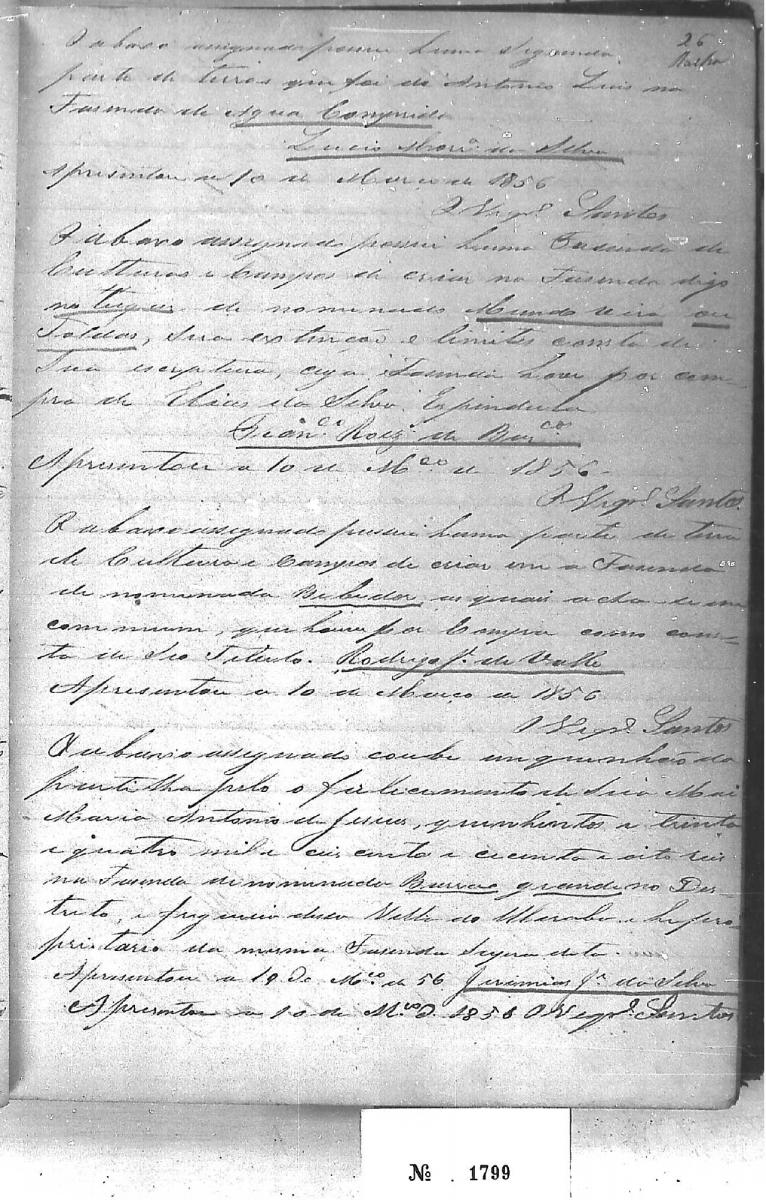 26
Rocha
O abaxo assignado possue huma Segunda
parte de terras que foi de Antonio Luis na
Fasenda de Agua Comprida
Lucio da Silva
Apresentou a 10 de Março de 1856
O Vigr.º Santos
O abaxo assegnado possue huma Fasenda de
Culturas e Campos de criar na Fasenda digo
no de nominado Mundo ou
Toldas, sua extinção e limites consta de
Sua escriptura, cuja Fasenda houve por com-
pra de Elias da Silva Espindula
Fran.co Roiz' de
Apresentou a 10 de M.ço de 1856.
O Vigr.º Santos.
O abaxo assegnado possue huma parte de terra
de Cultura e Campos de criar em a Fasenda
de nominada Bebedor, as quais acha de em
commum, que houve por Compra como cons-
ta de Seo Titulo. Rodrigo J.e do Valle
Apresentou a 10 de Março de 1856
O Vigr.º Santos
O abaxo assegnado coube un quinhão da
partilha pelo o falecimento de Sua Mai
Maria Antonia de Jesus, quinhentos e trinta
e quatro mil e e cecenta e oito reis
na Fasenda de nominada Barra grande no Des-
treto, e freguecia desta Villa do e he pro-
prietario da mesma Fasenda Segun data.
Apresentou a 10 de M.ço de 56 Jeremias J.e da Silva
Apresentou a 10 de M.ço de 1856 O Vigr.º Santos
Nº 1799